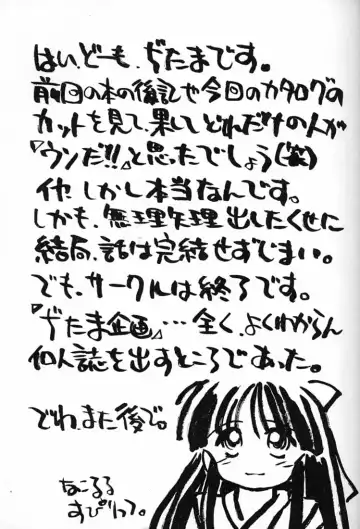 はい、どーも、ぢたまです。
前回の本の後記や今回のカタログの
カットを見て、果してどれだけの人が
『ウソだ!!』と思ったでしょう(笑)
イヤ、しかし本当なんです。
しかも、無理矢理出したくせに
結局、話は完結せずじまい。
でも、サークルは終了です。
『ぢたま企画』…全く、よくわからん
同人誌を出すところであった。
でわ、また後で。
なこるる
すぴりっつ。